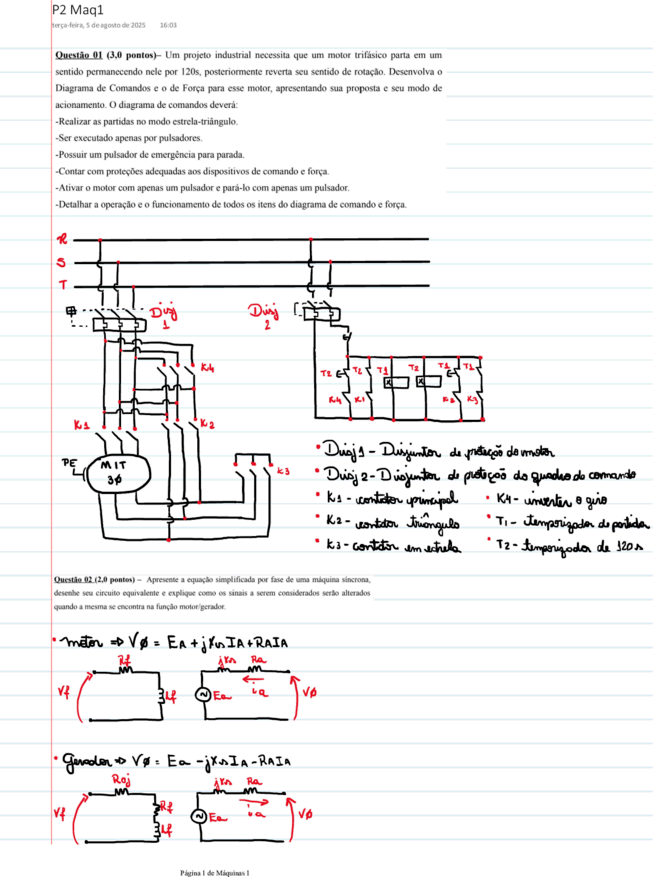 P2 Maq1
terça-feira, 5 de agosto de 2025 16:03
Questão 01 (3,0 pontos)– Um projeto industrial necessita que um motor trifásico parta em um
sentido permanecendo nele por 120s, posteriormente reverta seu sentido de rotação. Desenvolva o
Diagrama de Comandos e o de Força para esse motor, apresentando sua proposta e seu modo de
acionamento. O diagrama de comandos deverá:
-Realizar as partidas no modo estrela-triângulo.
-Ser executado apenas por pulsadores.
-Possuir um pulsador de emergência para parada.
-Contar com proteções adequadas aos dispositivos de comando e força.
-Ativar o motor com apenas um pulsador e pará-lo com apenas um pulsador.
-Detalhar a operação e o funcionamento de todos os itens do diagrama de comando e força.
R
S
T
Disj 1
Disj 2
K4
T2 T2 T1 T2 T1 T1
K4 K1 K2 K3
K1
K2
PE
MIT
3Ø
K3
• Disj 1 - Disjuntor de proteção do motor
• Disj 2 - Disjuntor de proteção do quadro de comando
• K1 - contator principal • K4 - inverter o giro
• K2 - contator triângulo • T1 - temporizador de partida
• K3 - contator em estrela • T2 - temporizador de 120s
Questão 02 (2,0 pontos) – Apresente a equação simplificada por fase de uma máquina síncrona,
desenhe seu circuito equivalente e explique como os sinais a serem considerados serão alterados
quando a mesma se encontra na função motor/gerador.
• motor ⇒ VØ = EA + jXsIA + RAIA
Rf
jXs Ra
Vf
Lf
Ea
ia
VØ
• Gerador ⇒ VØ = Ea - jXsIA - RAIA
Raj
jXs Ra
Vf
Rf
Lf
Ea
ia
VØ
Página 1 de Máquinas 1